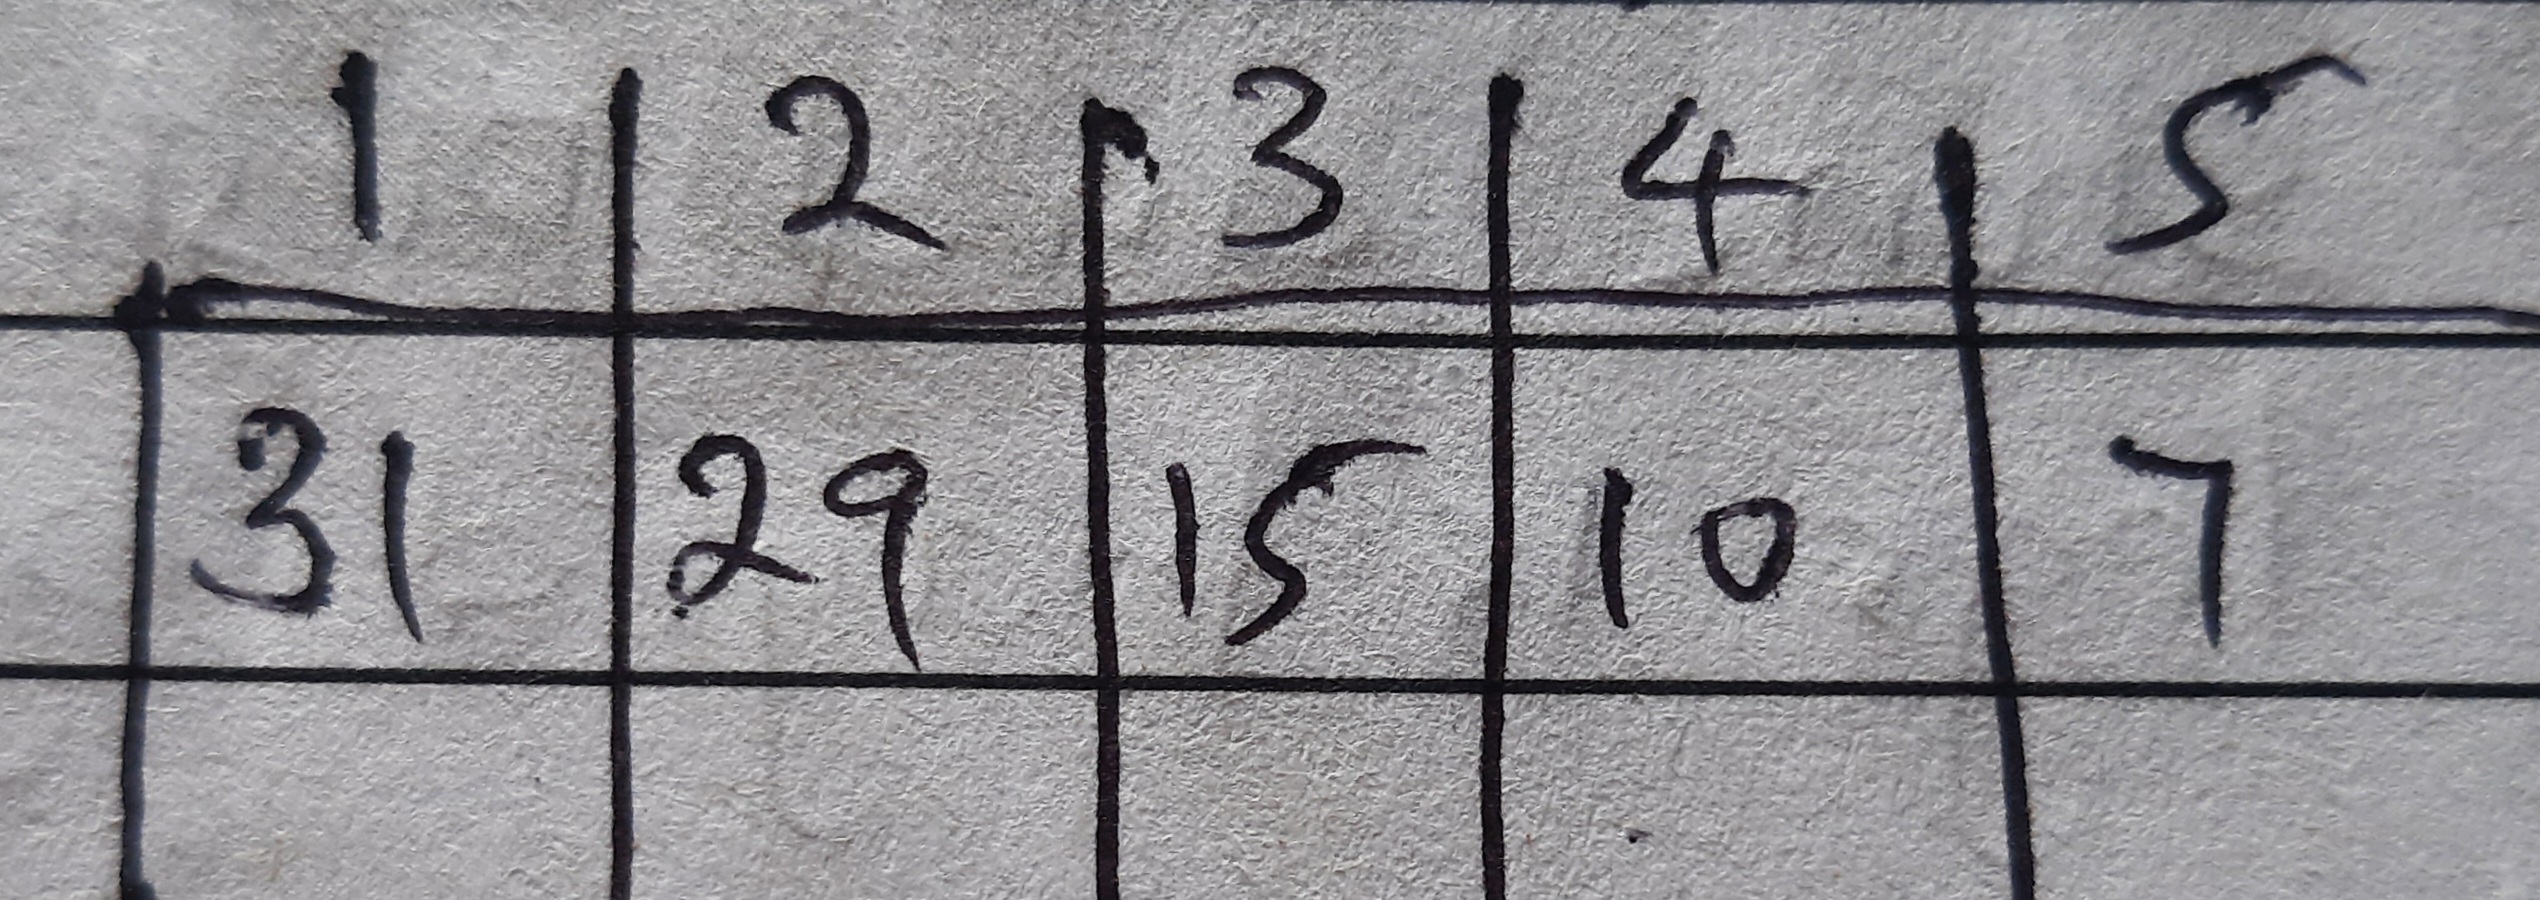 1 2 3 4 5
31 29 15 10 7